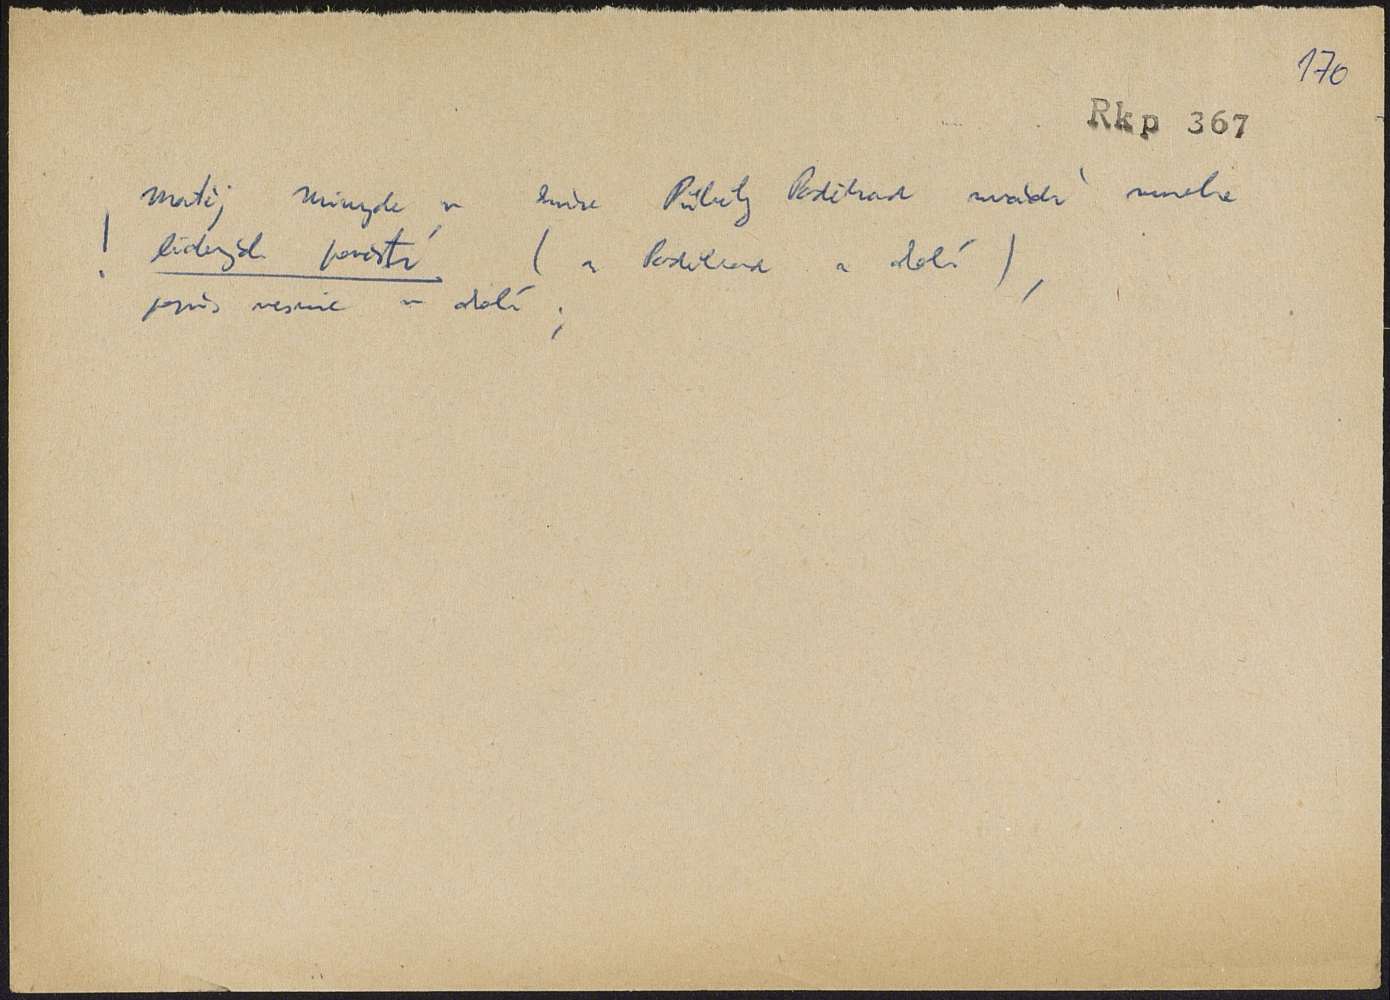 170
Rkp 367
Matěj Mikyde v knize Příběhy Poděbrad uvádí
! lidových pověstí ( z Poděbrad a okolí ),
popis vesnic v okolí ;